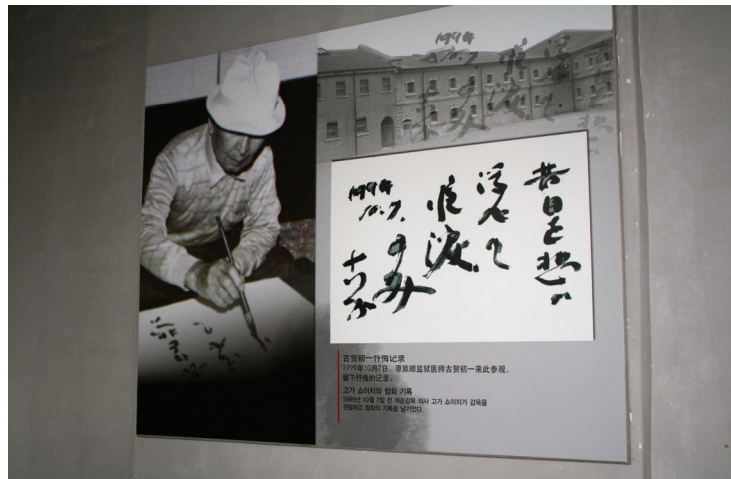 昔日を想い
唯涙
のみ
10.7.
古贺初一忏悔记录
1999年10月7日，原旅顺监狱医师古贺初一来此参观，
留下忏悔的记录。
고가 쇼이치의 참회 기록
1999년 10월 7일 전 여순감옥 의사 고가 쇼이치가 감옥을
관람하고 참회의 기록을 남기었다.